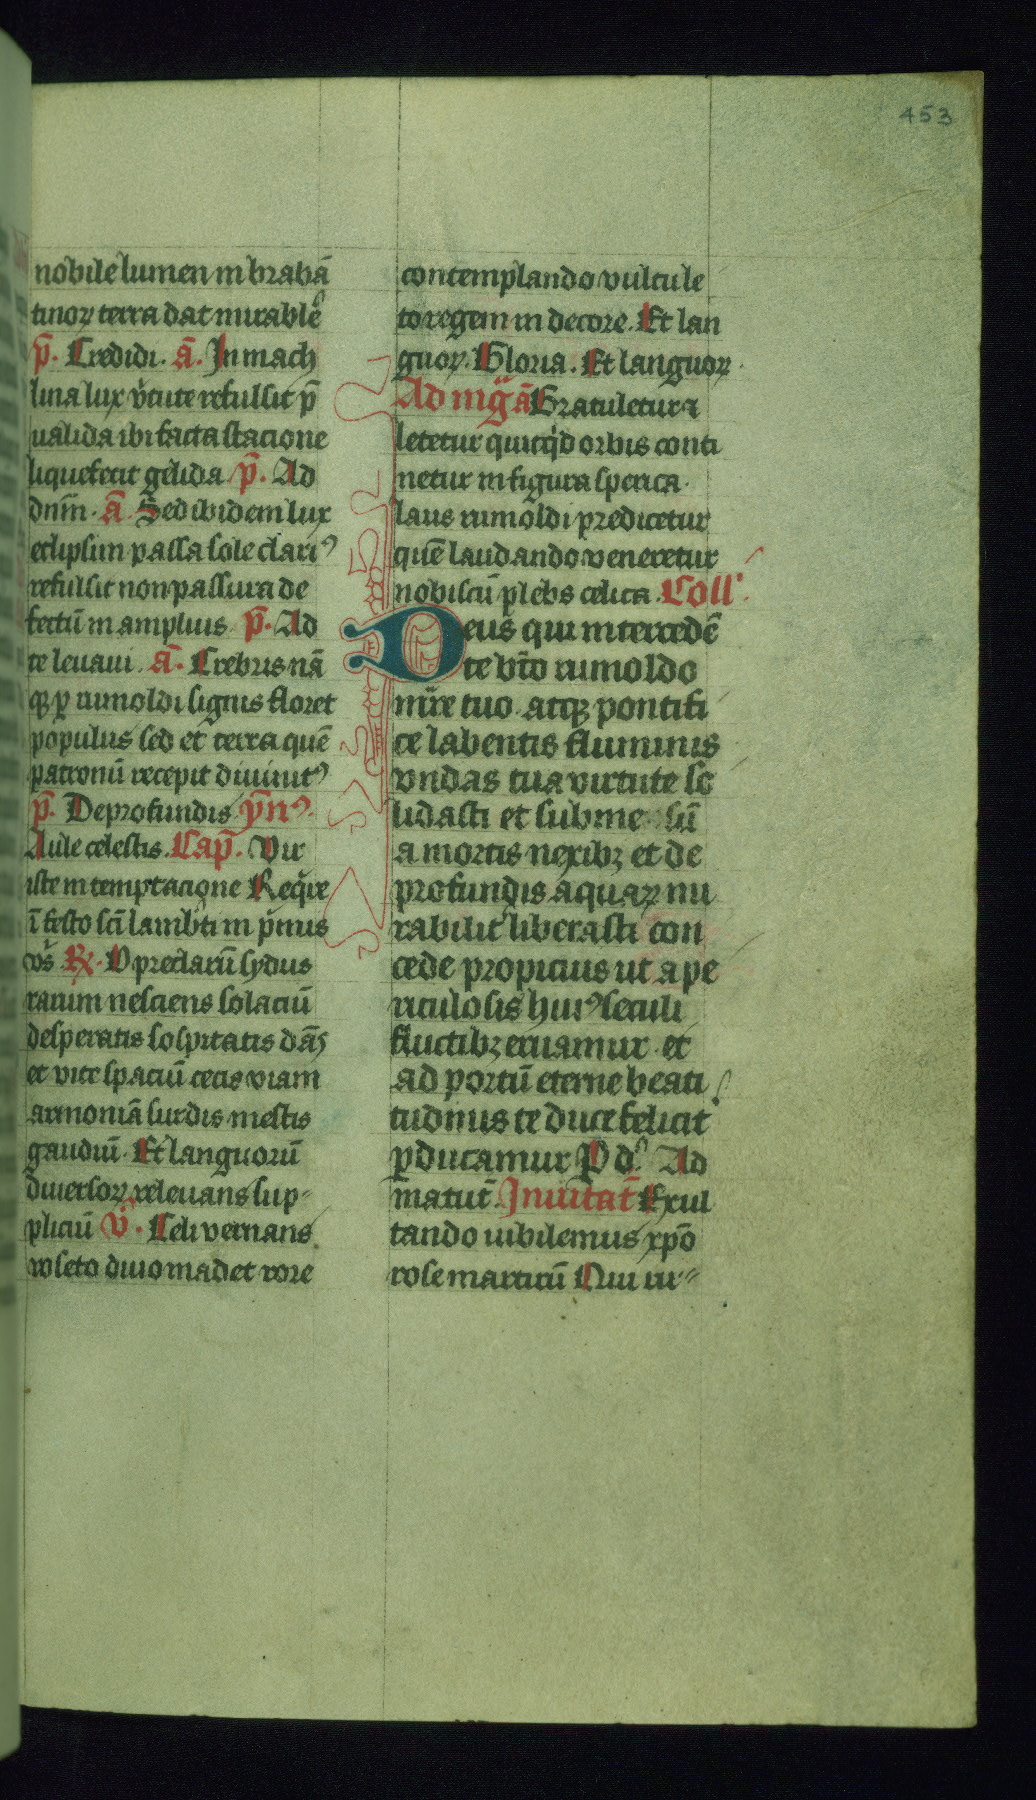 453
nobile lumen in brabā
tinoꝝ terra dat mirablēˢ
p̄. Credidi. ā. In mach
lina lux v̾tute refulsit p̄
ualida ibi facta stacione
liquefecit gelida p̄. Ad
dnm̄. ā. Sed ibidem lux
eclipsim passa sole clariꝰ
refulsit non passura de
fectū in amplius p̄. Ad
te leuaui. ā. Crebris nā
qꝫ ꝑ rumoldi signis floret
populus sed et terra quē
patronū recepit diuinitꝰ
p̄. De profundis ym̄nꝰ.
Aule celestis. Cap̄. Vir
iste in temptacione Reqͥre
ī festo sc̄i lamb̾ti in pͥmis
vs̄ ℟. O preclarū sydus
ratum nesciens solaciū
desperatis sospitatis dās̄
et vite spaciū cecis viam
armoniā surdis mestis
gaudiū. Et languorū
diuersoꝝ releuans sup-
pliciū v̄. Celi vernans
roseto diuo madet rore
contemplando vultule
to regem in decore. Et lan
guoꝝ. Gloria. Et languoꝝ.
Ad mg̈ ā Gratuletur ⁊
letetur quicqͥd orbis conti
netur in figura sperica.
laus rumoldi predicetur
quē laudando veneretur
nobiscū plebs celica. Coll'
Deus qui intercedē
te btō rumoldo
mr̄e tuo. atqꝫ pontifi
ce labentis fluminis
vndas tua virtute so
lidasti et submersū
a mortis nexibꝫ et de
profundis aquaꝝ mi
rabilit̾ liberasti con
cede propicius ut a pe
riculosis huiꝰ seculi
fluctibꝫ eruamur. et
ad portū eterne beati
tudinis te duce felicit̾
ꝑducamur P dº. Ad
matut̄. Inuitat̄ Exul
tando iubilemus xp̄o
rose martirū Qui ru-